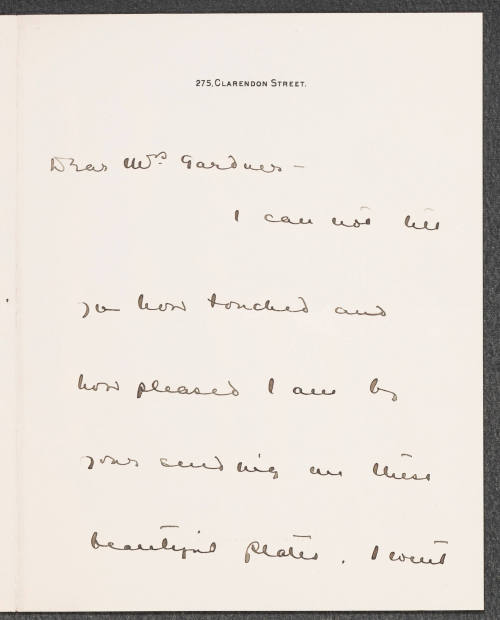 275, CLARENDON STREET.
Dear Mrs. Gardner —
I can not tell
you how touched and
how pleased I am by
your sending me these
beautiful plates. I went